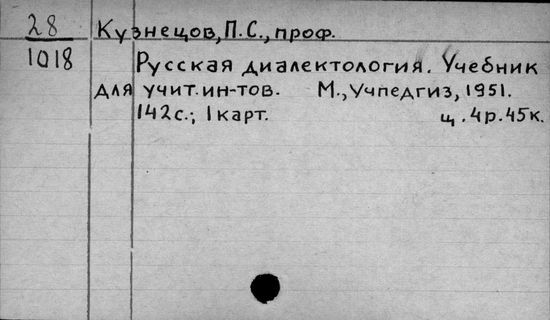 28 Кузнецов, П.С., проф.
1018 Русская диалектология. Учебник
для учит.ин-тов. М., Учпедгиз, 1951.
142с.; 1 карт. ц. 4р. 45к.